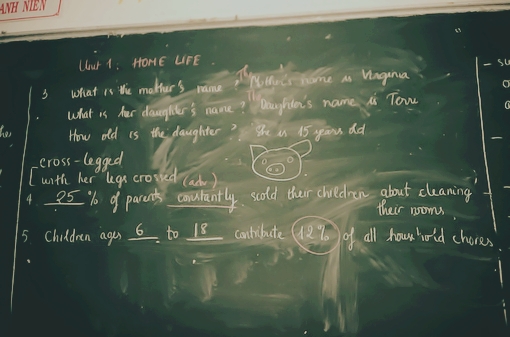 ANH NIÊN
Unit 1: HOME LIFE
3 What is the mother's name? The Mother's name is Virginia
What is her daughter's name? The Daughter's name is Torre
How old is the daughter? She is 15 years old
cross-legged
with her legs crossed (adv)
4. 25 % of parents constantly scold their children about cleaning
their rooms.
5. Children ages 6 to 18 contribute 12% of all household chores